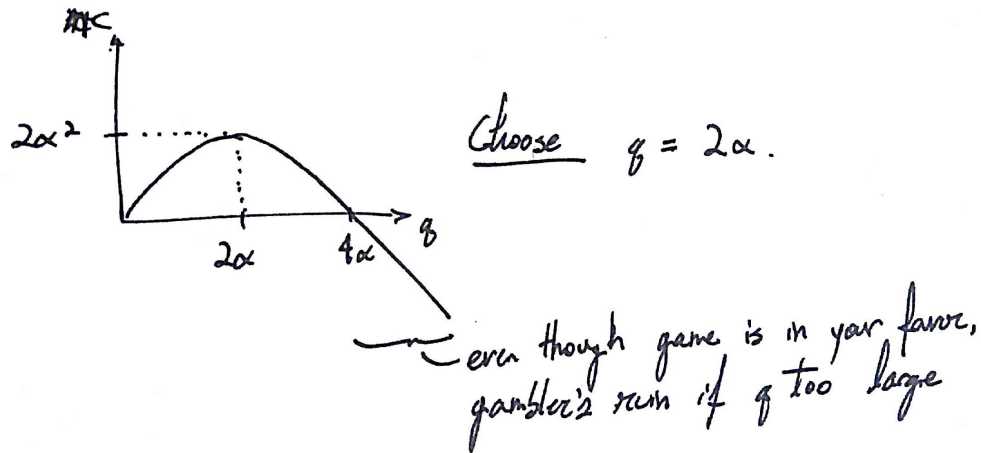 C
2α²
Choose q = 2α.
q
2α 4α
even though game is in your favor,
gambler's ruin if q too large